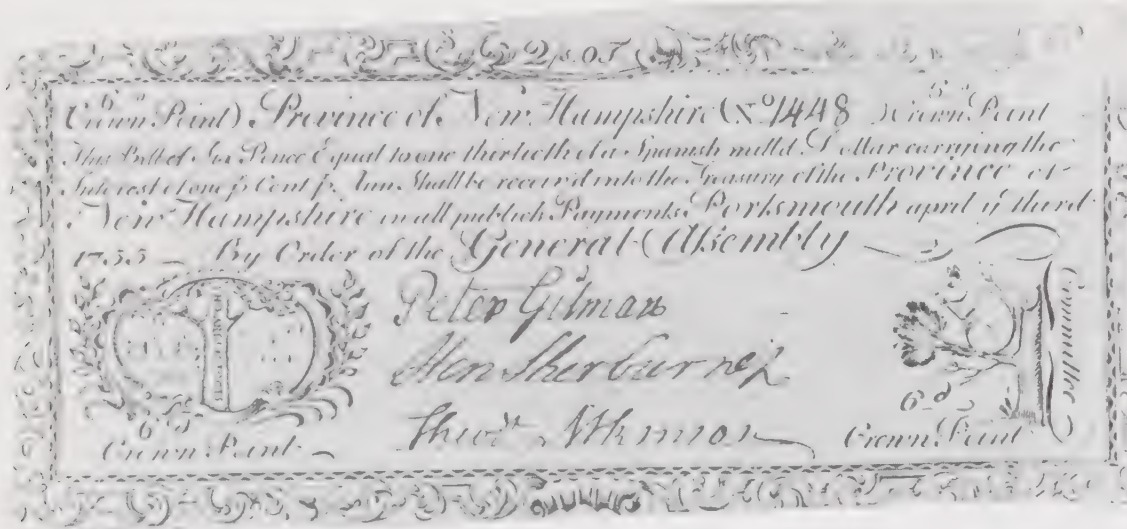 6d 6d
Crown Point) Province of New Hampshire (No 1448 ) Crown Point
This Bill of Six Pence Equal to one thirtieth of a Spanish mill'd Dollar carrying the
Interest of one p Cent p Ann Shall be receiv'd into the Treasury of the Province of
New Hampshire in all publick Payments. Portsmouth april ye third
1755 By Order of the General Assembly
Peter Gilman
Hen Sherburne
Theod Atkinson
Committee
6d 6d
Crown Point Crown Point